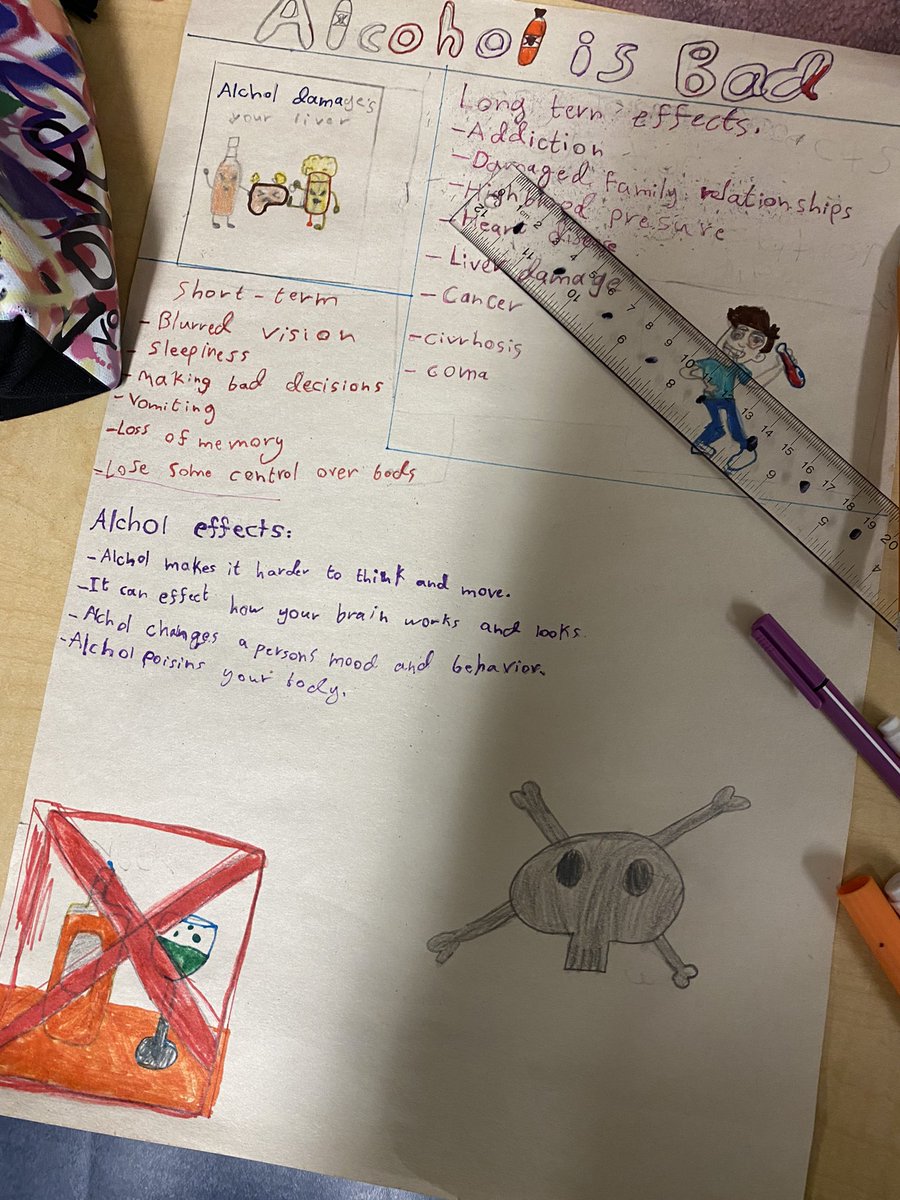 Alcohol is Bad
Alchol damage's
your liver
Long term effects.
-Addiction
-Damaged family relationships
-High blood pressure
-Heart
-Liver damage
-Cancer
-Civrhosis
- coma
Short-term
- Blurred vision
- Sleepiness
-Making bad decisions
-Vomiting
-Loss of memory
-Lose some control over body
Alchol effects:
-Alchol makes it harder to think and move.
-It can effect how your brain works and looks.
- Alchol changes a persons mood and behavior.
-Alchol poisins
your body.
cm 2 3 4 5 6 7 8 9 10 11 12 13 14 15 16 17 18 19 20